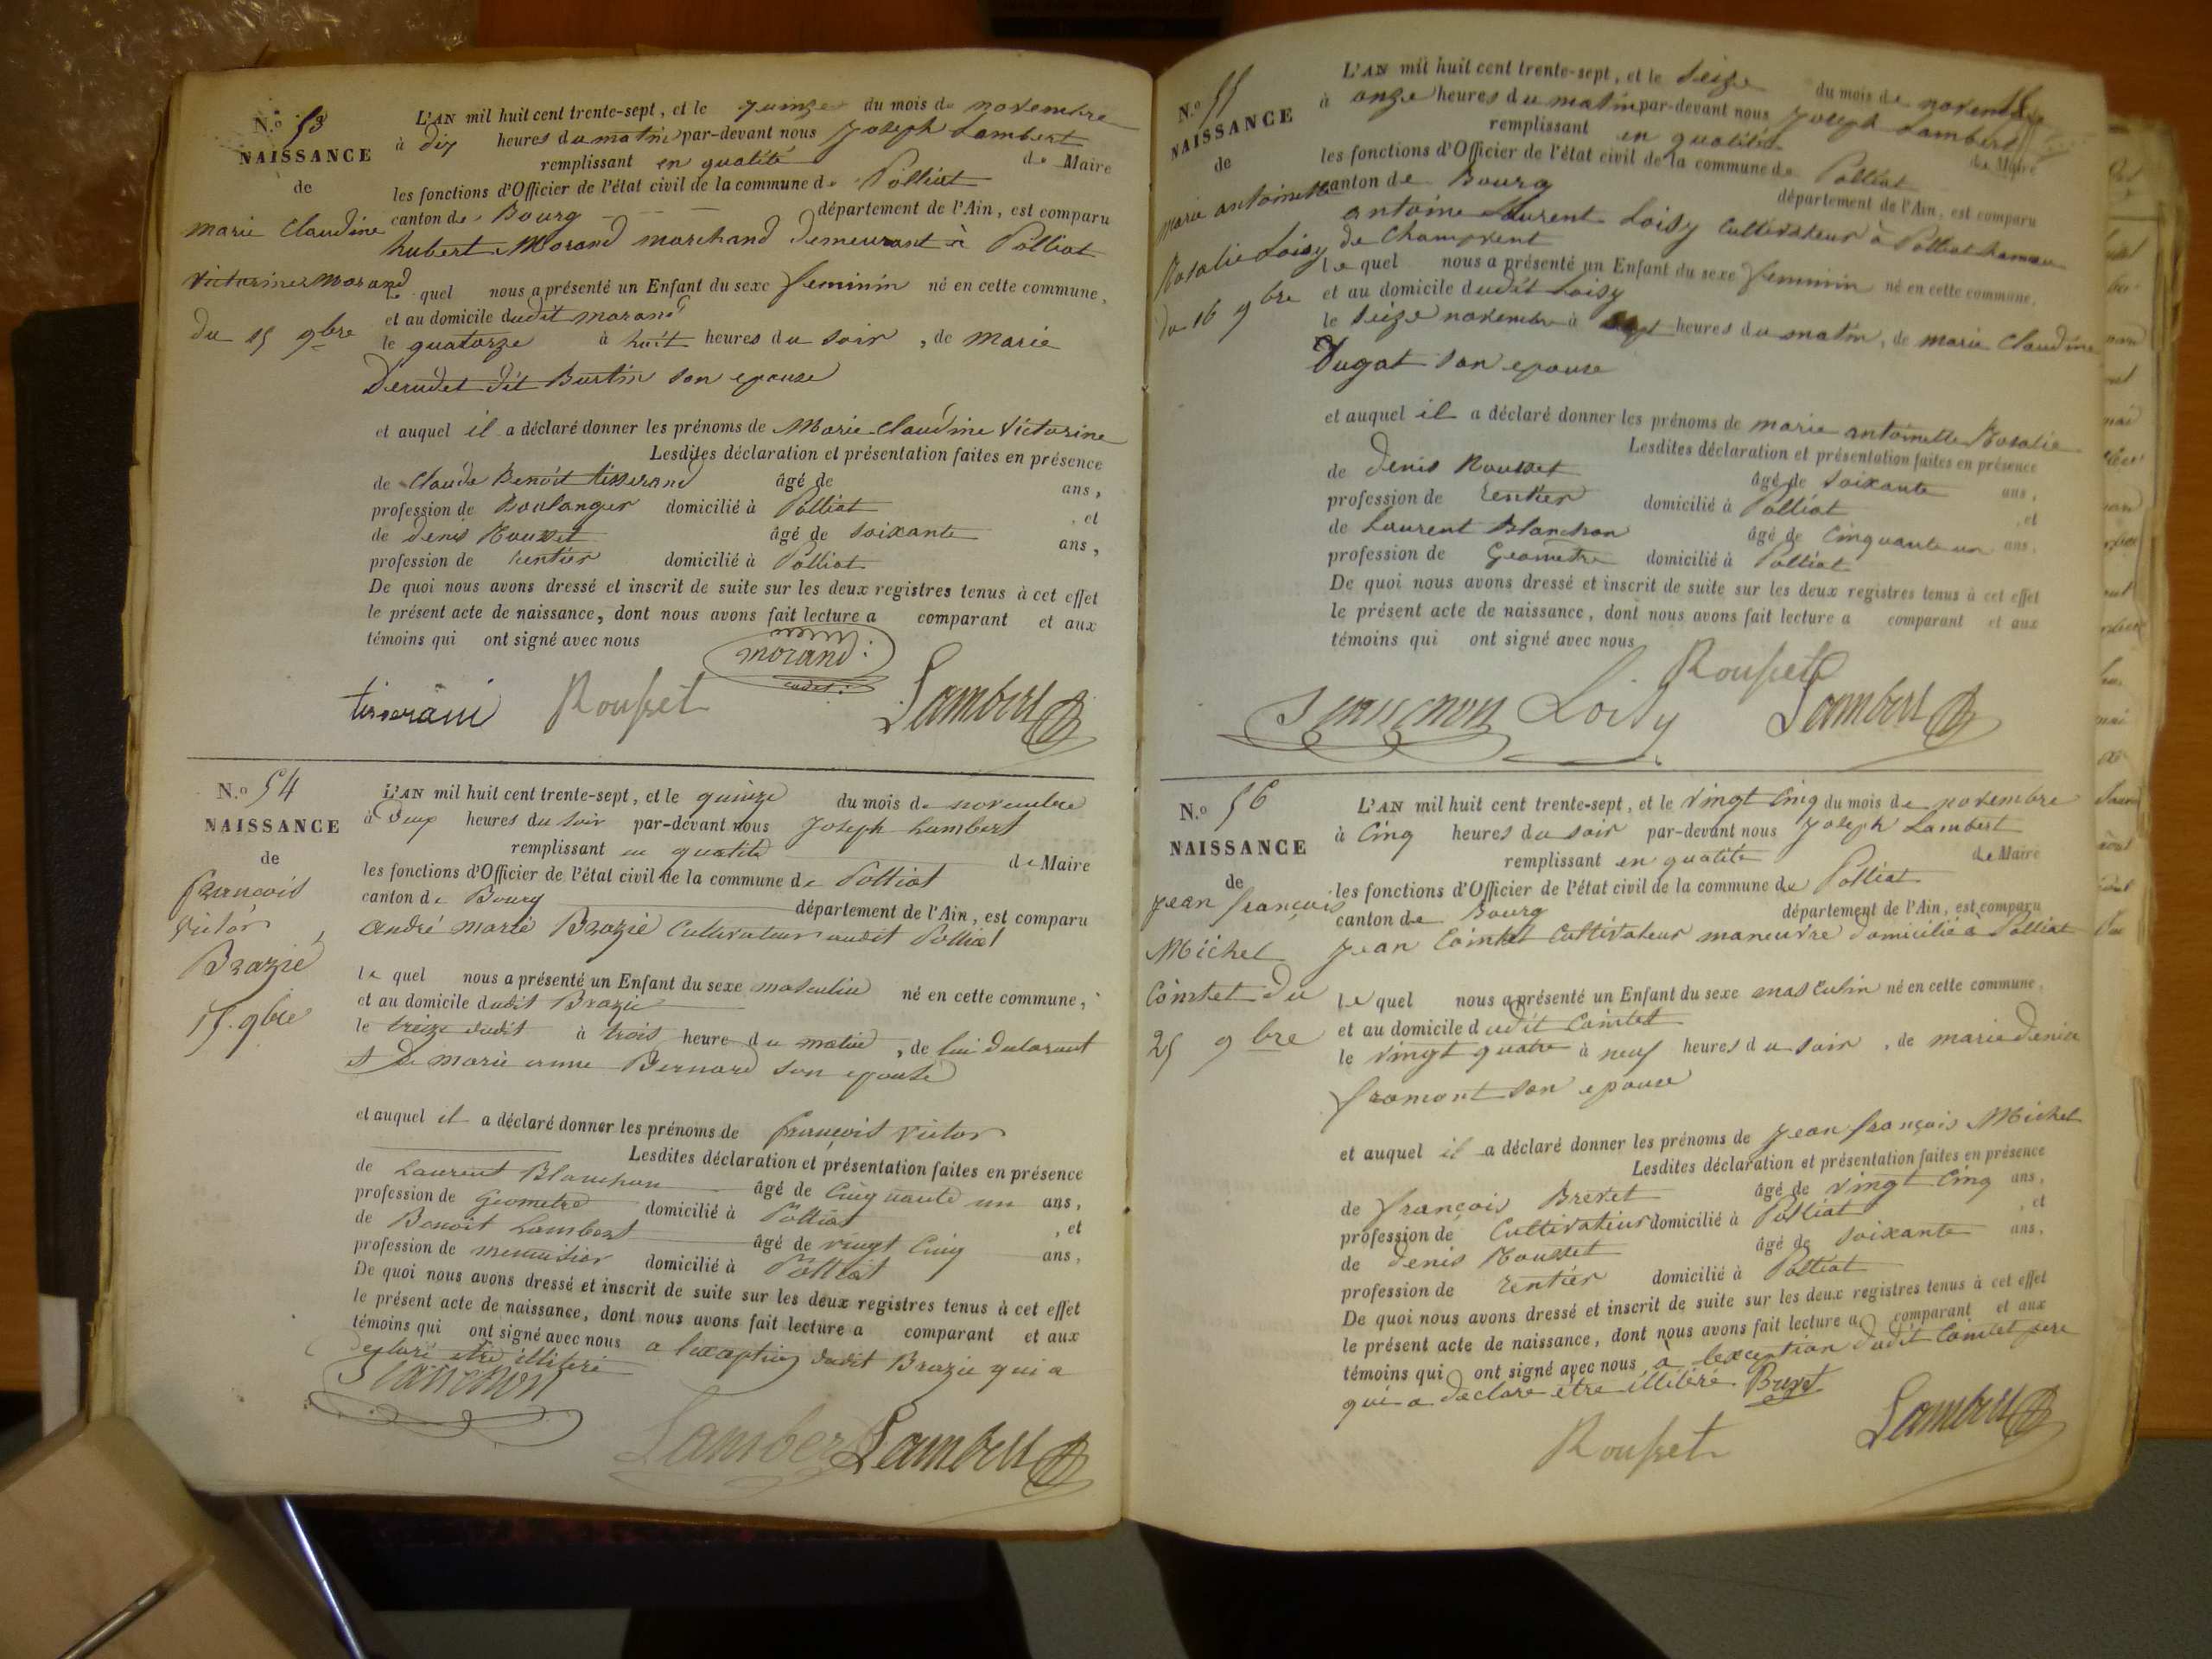 N.o 53
NAISSANCE
de
marie Claudine
Victorine Morand
du 15 9bre
L'AN mil huit cent trente-sept, et le quinze du mois de novembre
à dix heures du matin par-devant nous Joseph Lambert
remplissant en qualité de Maire
les fonctions d'Officier de l'état civil de la commune de Polliat
canton de Bourg département de l'Ain, est comparu
hubert Morand marchand demeurant à Polliat
le quel nous a présenté un Enfant du sexe feminin né en cette commune,
et au domicile dudit morand
le quatorze à huit heures du soir, de marie
Derudet dit Burtin son epouse
et auquel il a déclaré donner les prénoms de Marie Claudine Victorine
Lesdites déclaration et présentation faites en présence
de Claude Benoit tisserand âgé de ans,
profession de Boulanger domicilié à Polliat , et
de denis Rousset âgé de soixante ans,
profession de rentier domicilié à Polliat
De quoi nous avons dressé et inscrit de suite sur les deux registres tenus à cet effet
le présent acte de naissance, dont nous avons fait lecture a comparant et aux
témoins qui ont signé avec nous
morand
tisserand Rousset Lambert
N.o 54
NAISSANCE
de
françois
victor
Brazié
15. 9bre
L'AN mil huit cent trente-sept, et le quinze du mois de novembre
à deux heures du soir par-devant nous Joseph Lambert
remplissant en qualité de Maire
les fonctions d'Officier de l'état civil de la commune de Polliat
canton de Bourg département de l'Ain, est comparu
andré marie Brazié Cultivateur audit Polliat
le quel nous a présenté un Enfant du sexe masculin né en cette commune,
et au domicile dudit Brazié
le treize dudit à trois heure du matin, de lui déclarant
et de marie anne Bernard son epouse
et auquel il a déclaré donner les prénoms de françois victor
Lesdites déclaration et présentation faites en présence
de Laurent Blanchon âgé de Cinquante un ans,
profession de Géometre domicilié à Polliat , et
de Benoit Lambert âgé de vingt Cinq ans,
profession de menuisier domicilié à Polliat
De quoi nous avons dressé et inscrit de suite sur les deux registres tenus à cet effet
le présent acte de naissance, dont nous avons fait lecture a comparant et aux
témoins qui ont signé avec nous a lexception dudit Brazié qui a
déclaré etre illiteré
Blanchon
Lambert Lambert
N.o 55
NAISSANCE
de
marie antoinette
Rosalie Loisy
du 16 9bre
L'AN mil huit cent trente-sept, et le seize du mois de novembre
à onze heures du matin par-devant nous Joseph Lambert
remplissant en qualité de Maire
les fonctions d'Officier de l'état civil de la commune de Polliat
canton de Bourg département de l'Ain, est comparu
antoine Laurent Loisy Cultivateur à Polliat hameau
de Champvent
le quel nous a présenté un Enfant du sexe feminin né en cette commune,
et au domicile dudit Loisy
le seize novembre à sept heures du matin, de marie Claudine
Dugat son epouse
et auquel il a déclaré donner les prénoms de marie antoinette Rosalie
Lesdites déclaration et présentation faites en présence
de denis Rousset âgé de soixante ans,
profession de rentier domicilié à Polliat , et
de Laurent Blanchon âgé de Cinquante un ans,
profession de Geometre domicilié à Polliat
De quoi nous avons dressé et inscrit de suite sur les deux registres tenus à cet effet
le présent acte de naissance, dont nous avons fait lecture a comparant et aux
témoins qui ont signé avec nous
Rousset
Blanchon Loisy Lambert
N.o 56
NAISSANCE
de
Jean françois
Michel
Cointet du
25 9bre
L'AN mil huit cent trente-sept, et le vingt Cinq du mois de novembre
à Cinq heures du soir par-devant nous Joseph Lambert
remplissant en qualité de Maire
les fonctions d'Officier de l'état civil de la commune de Polliat
canton de Bourg département de l'Ain, est comparu
Jean Cointet Cultivateur maneuvre domicilié à Polliat
le quel nous a présenté un Enfant du sexe masculin né en cette commune,
et au domicile dudit Cointet
le vingt quatre à neuf heures du soir, de marie denise
fromont son epouse
et auquel il a déclaré donner les prénoms de Jean françois Michel
Lesdites déclaration et présentation faites en présence
de françois Brevet âgé de vingt Cinq ans,
profession de Cultivateur domicilié à Polliat , et
de denis Rousset âgé de soixante ans,
profession de rentier domicilié à Polliat
De quoi nous avons dressé et inscrit de suite sur les deux registres tenus à cet effet
le présent acte de naissance, dont nous avons fait lecture a comparant et aux
témoins qui ont signé avec nous à lexception dudit Cointet pere
qui a declaré etre illiteré. Brevet
Rousset Lambert